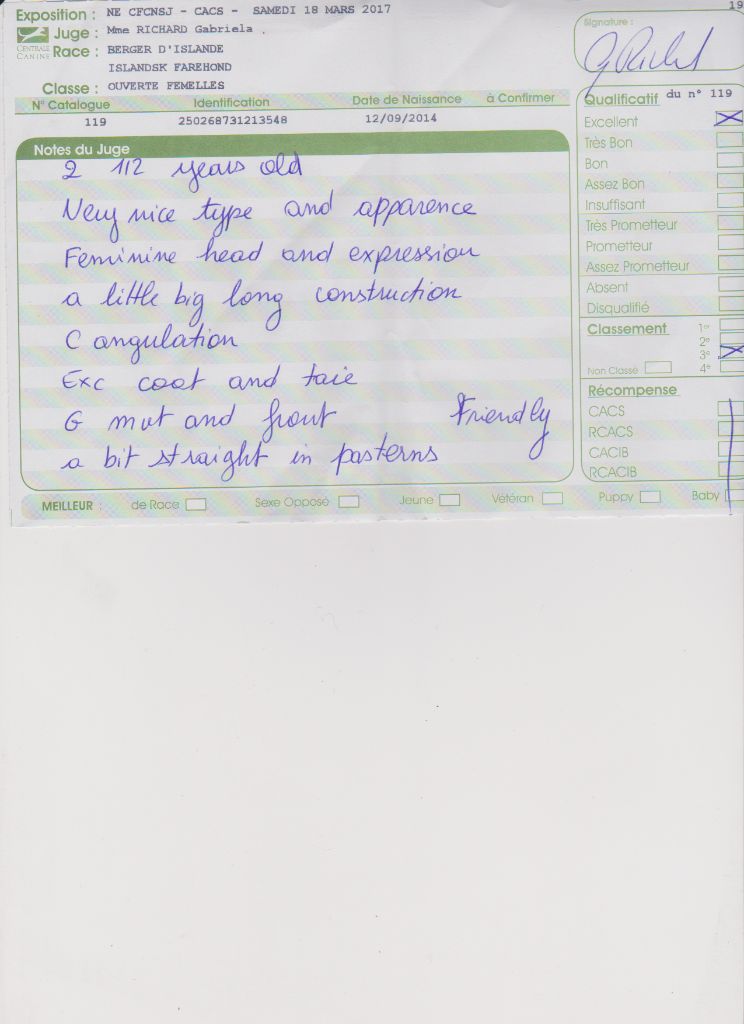 19
Exposition : NE CFCNSJ - CACS - SAMEDI 18 MARS 2017
Juge : Mme RICHARD Gabriela .
CENTRALE CANINE
Race : BERGER D'ISLANDE
ISLANDSK FAREHOND
Classe : OUVERTE FEMELLES
Signature :
G Richard
N° Catalogue Identification Date de Naissance à Confirmer
119 250268731213548 12/09/2014
Notes du Juge
2 1/2 years old
Very nice type and apparence
Feminine head and expression
a little big long construction
C angulation
Exc coat and taie
G mvt and front Friendly
a bit straight in pasterns
Qualificatif du n° 119
Excellent
Très Bon
Bon
Assez Bon
Insuffisant
Très Prometteur
Prometteur
Assez Prometteur
Absent
Disqualifié
Classement 1er
2e
3e
Non Classé 4e
Récompense
CACS
RCACS
CACIB
RCACIB
MEILLEUR : de Race Sexe Opposé Jeune Vétéran Puppy Baby